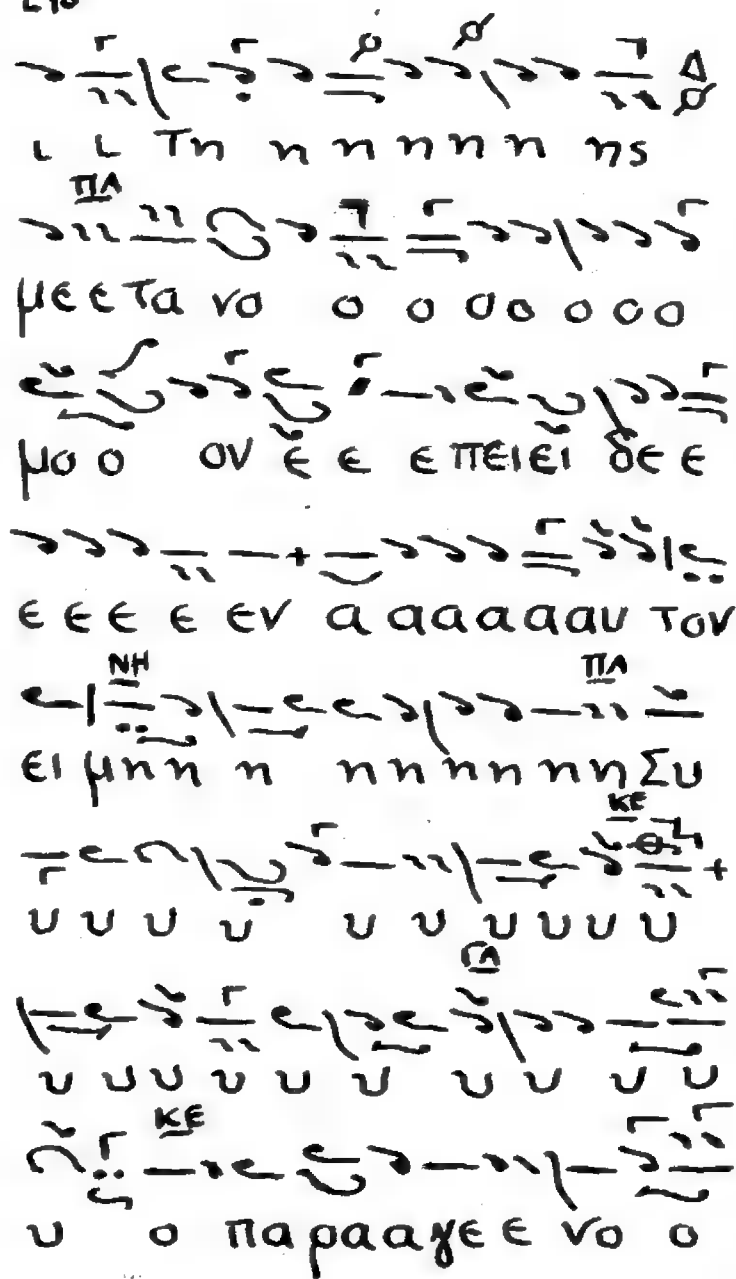 ι ι τη η η η η η ης
ΠΑ
με ε τα νο ο ο ο ο ο ο ο
μο ο ον ε ε ε πει ει δε ε
ε ε ε ε εν α α α α α αυ τον
ΝΗ ΠΑ
ει μη η η η η η η η η Συ
ΚΕ
υ υ υ υ υ υ υ υ υ υ
ΓΑ
υ υ υ υ υ υ υ υ υ υ
ΚΕ
υ ο πα ρα α γε ε νο ο